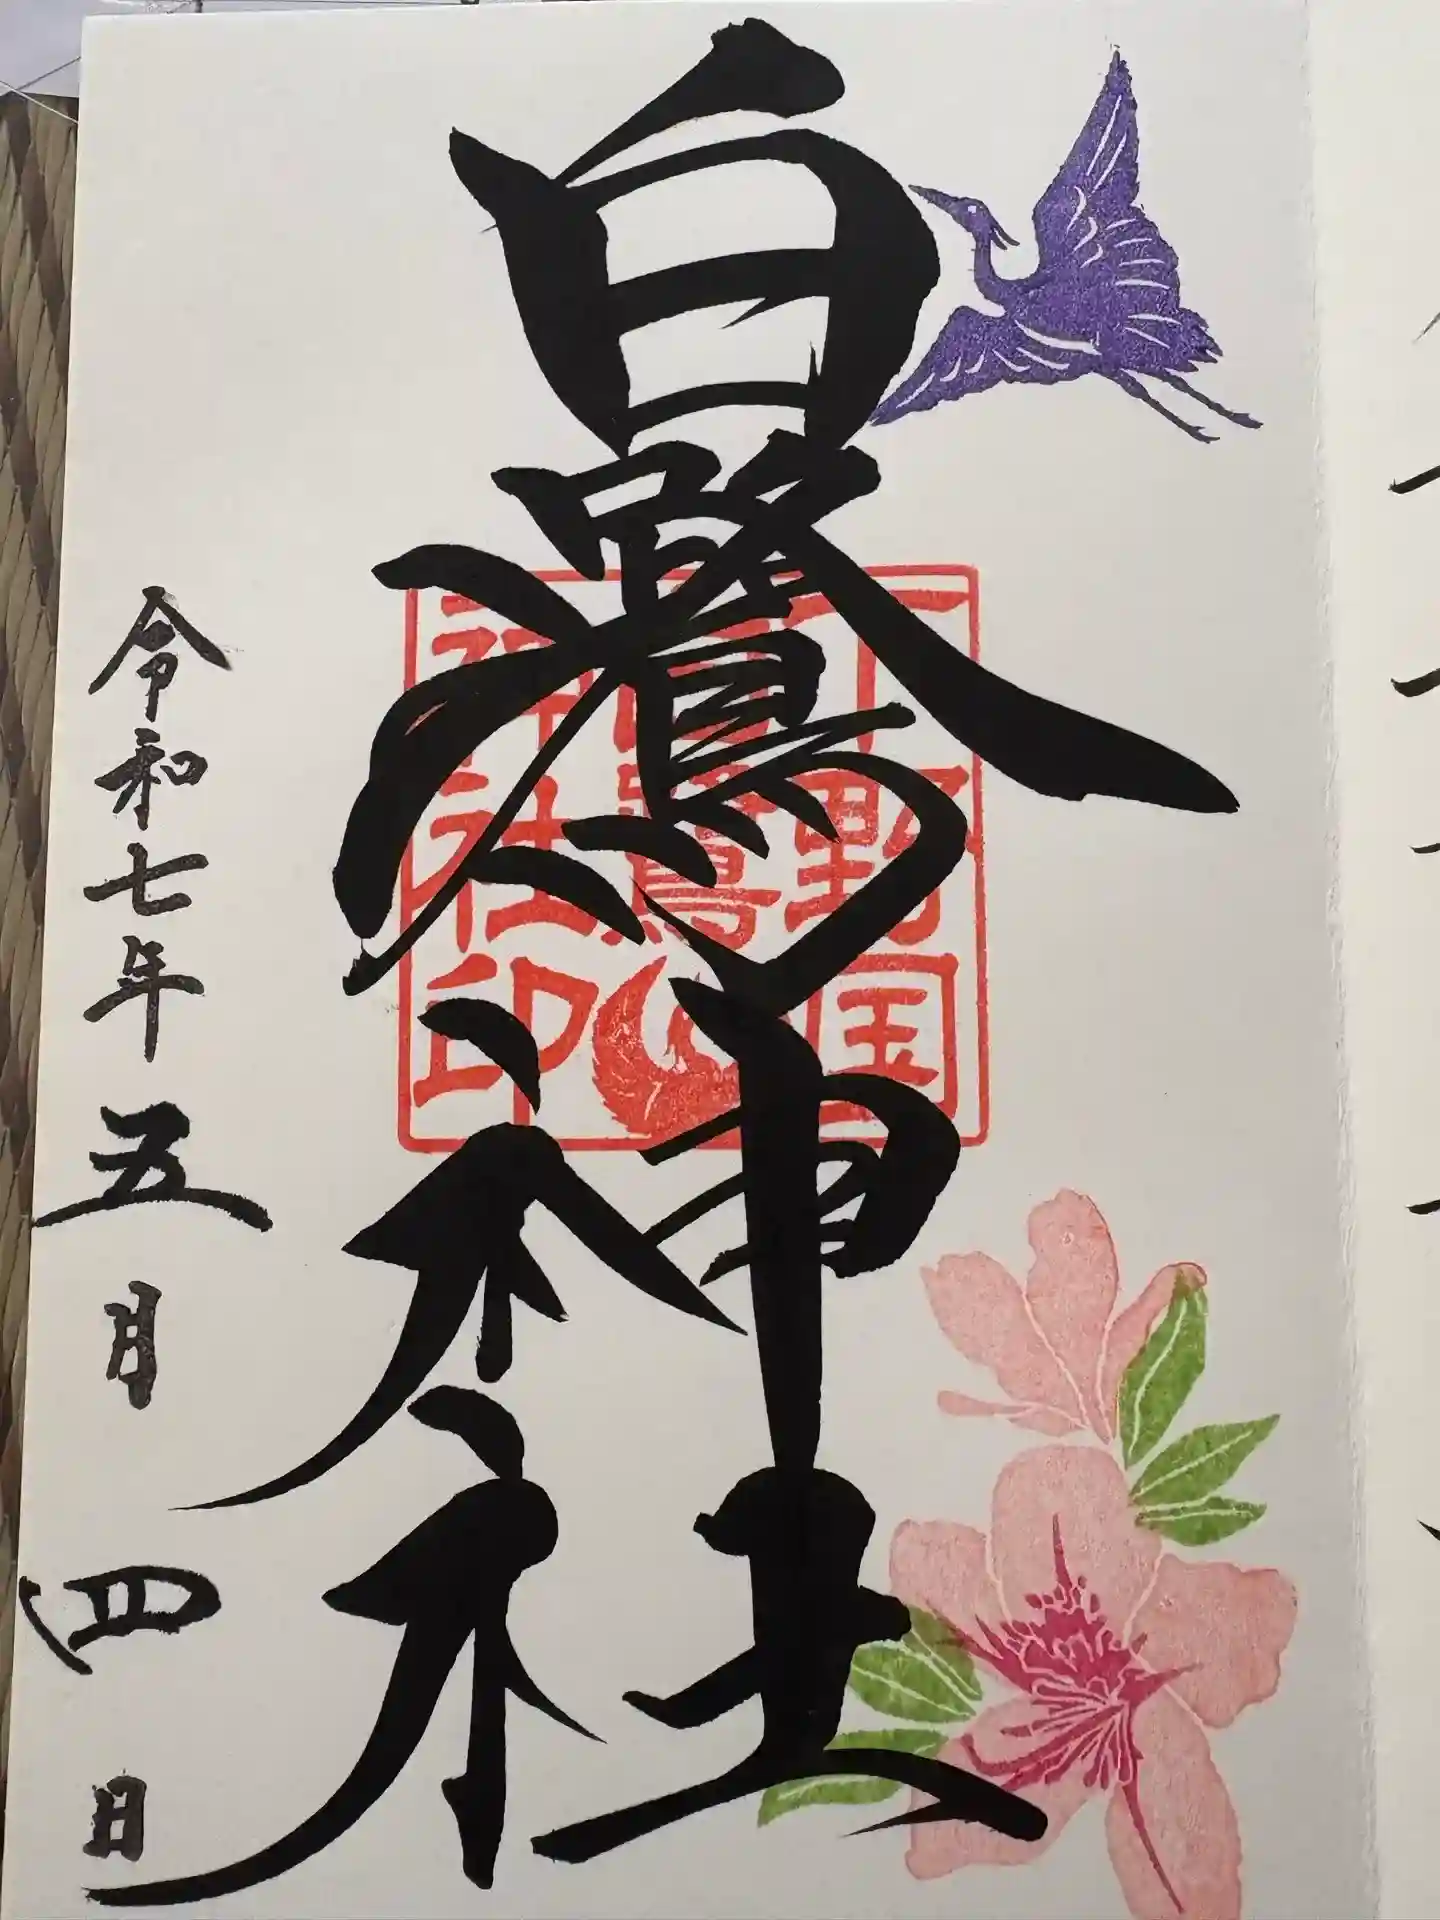 白鷺神社
下野国
白鷺
神社印
令和七年五月四日